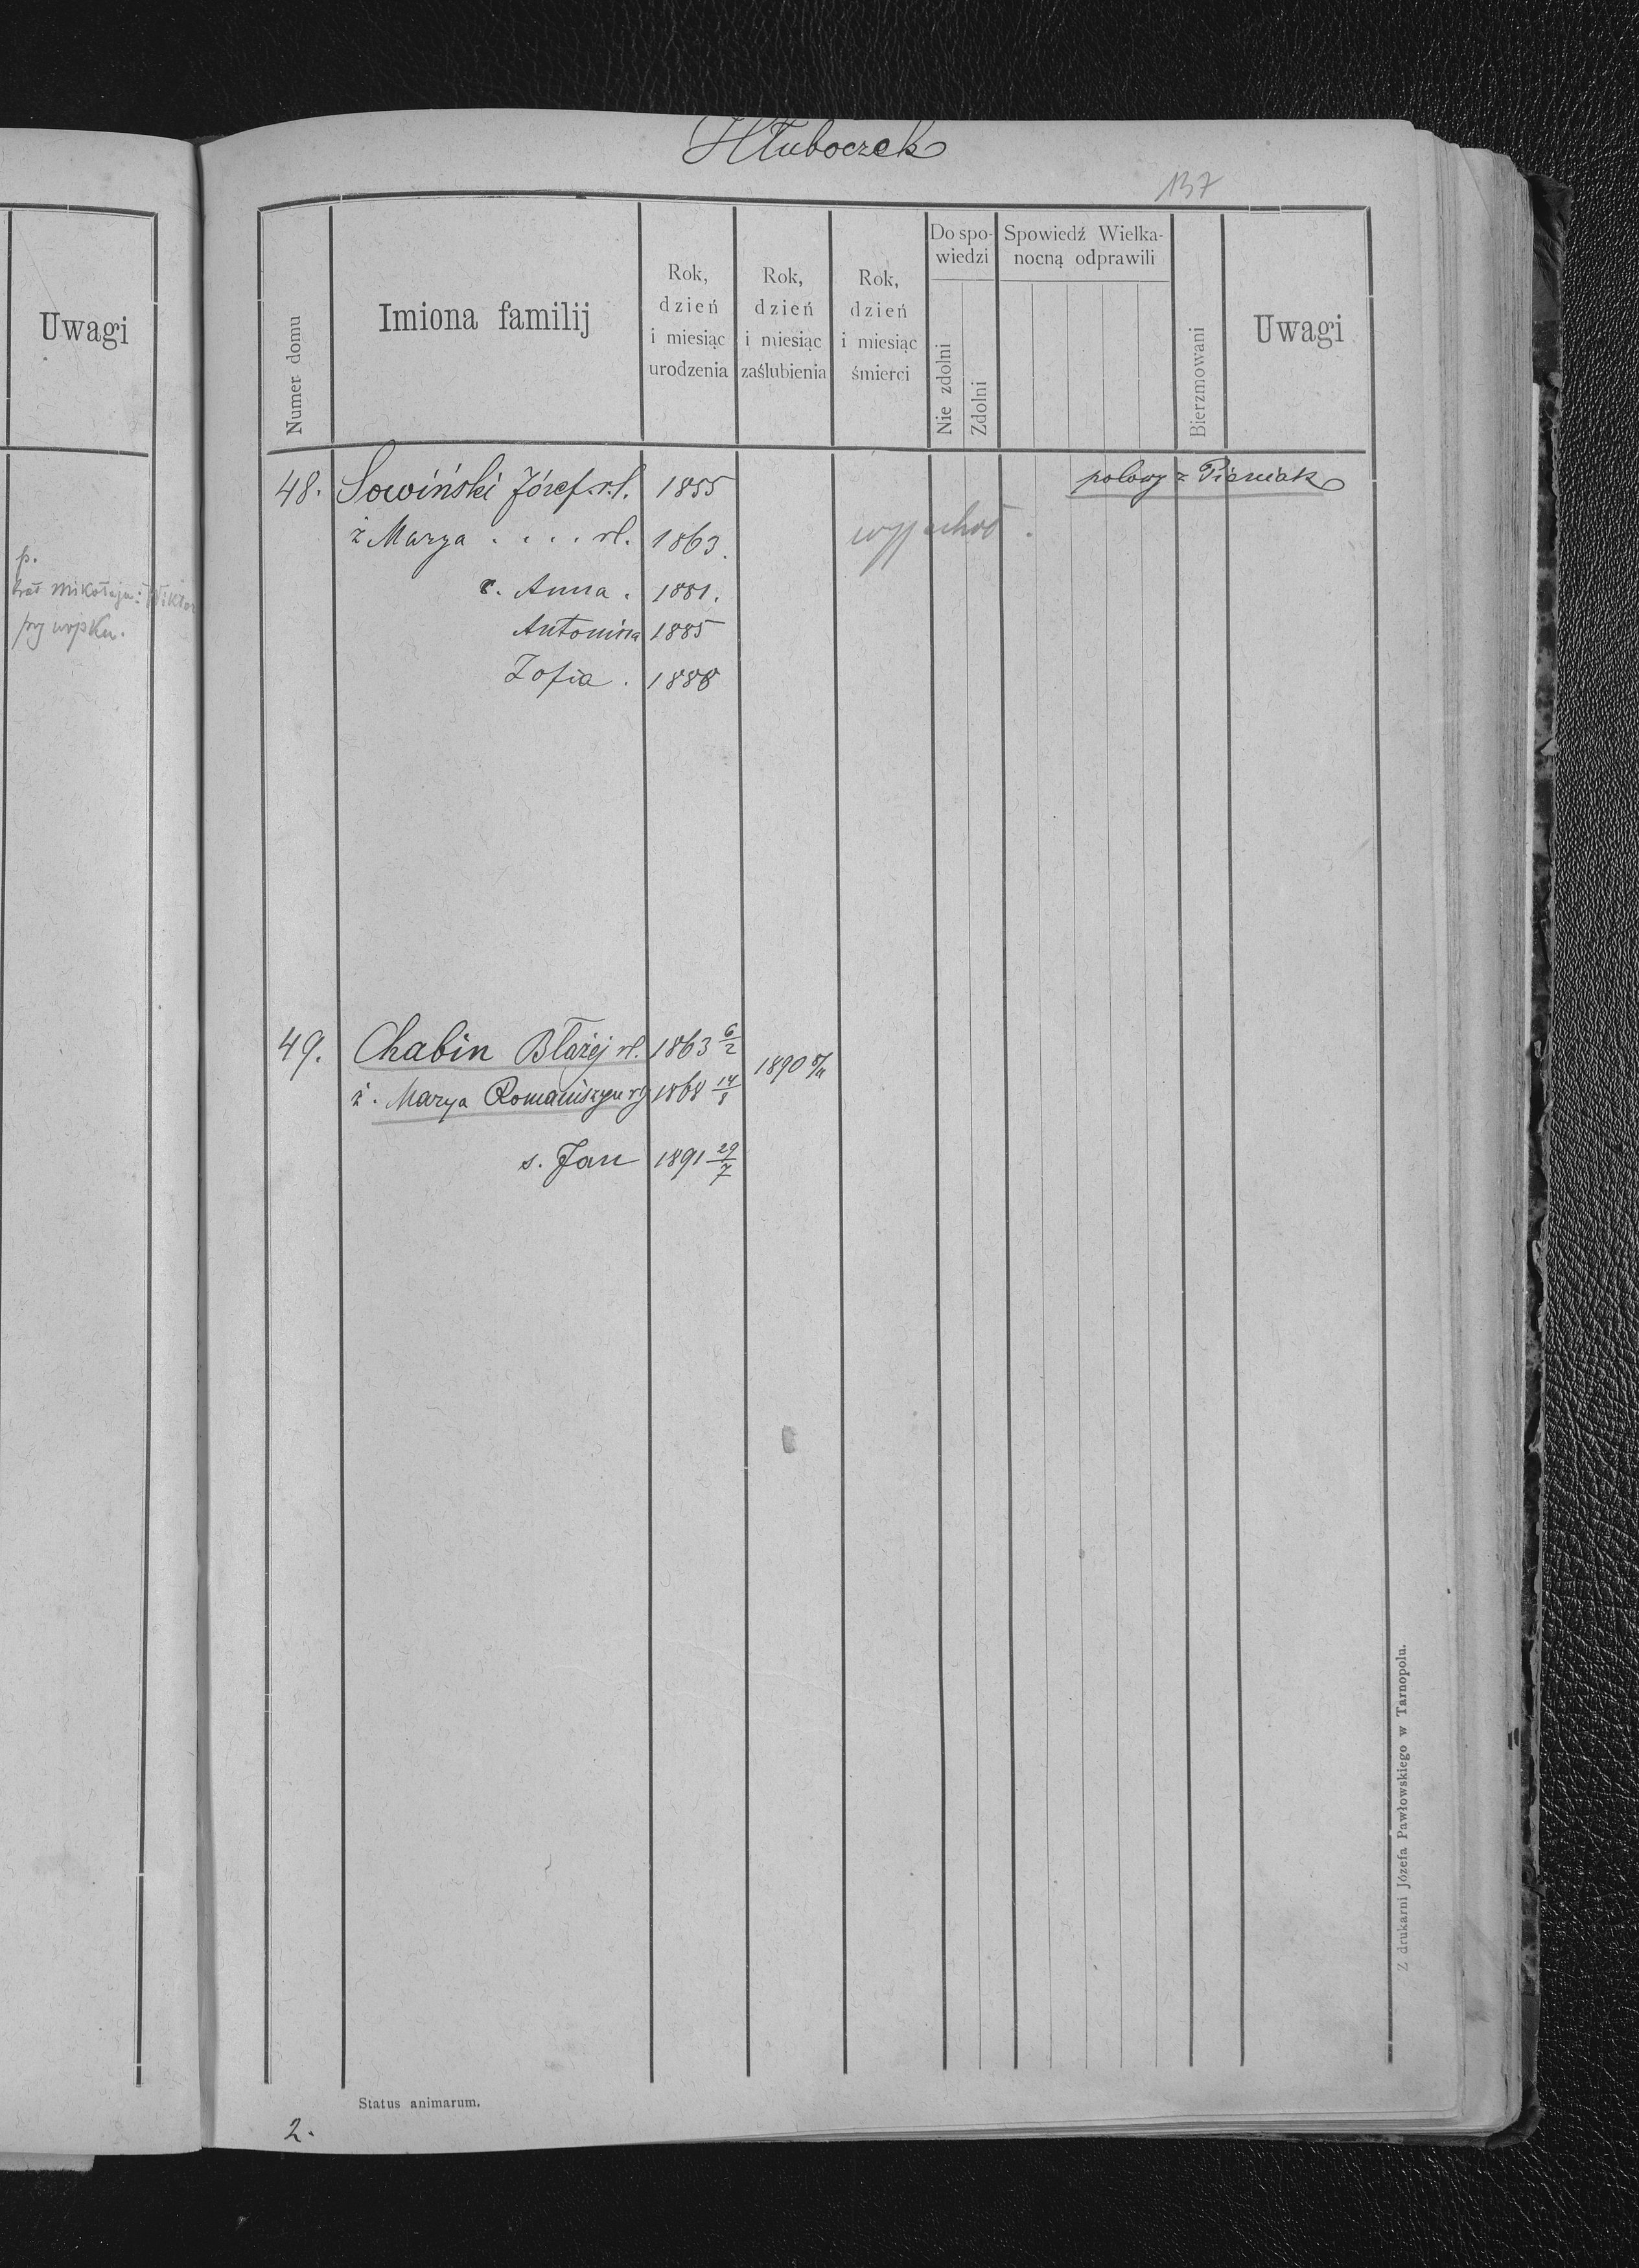 Uwagi
p.
brat Mikołaja: Wiktor
przy wojsku.
Hłuboczek
137
Numer domu
Imiona familij
Rok, dzień i miesiąc urodzenia
Rok, dzień i miesiąc zaślubienia
Rok, dzień i miesiąc śmierci
Do spo-
wiedzi
Nie zdolni
Zdolni
Spowiedź Wielka-
nocną odprawili
Bierzmowani
Uwagi
48. Sowiński Józef r.l. 1855 polowy z Pieniak
ż Marya . . . . rl. 1863. wyjechał.
c. Anna . 1881.
Antonina 1885
Zofia . 1888
49. Chabin Błażej rl. 1863 6/2
1890 8/11
ż. Marya Romaniszyn 1868 14/8
s. Jan 1891 29/7
Status animarum.
2.
Z drukarni Józefa Pawłowskiego w Tarnopolu.